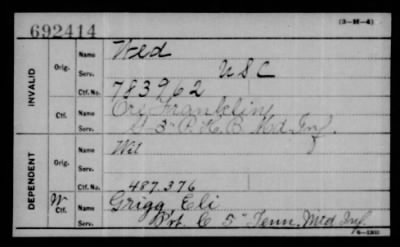 692414
(3-M-4)
INVALID
Orig.
Name Wid
Serv. U S C
Ctf. No. 783962
Ctf.
Name Franklin
Serv. 3" P. H. B. Md. Inf.
DEPENDENT
Orig.
Name Wid
Serv.
Ctf. No. 487.376
W Ctf.
Name Grigg Eli
Serv. Pvt. C 5" Tenn. Mtd Inf